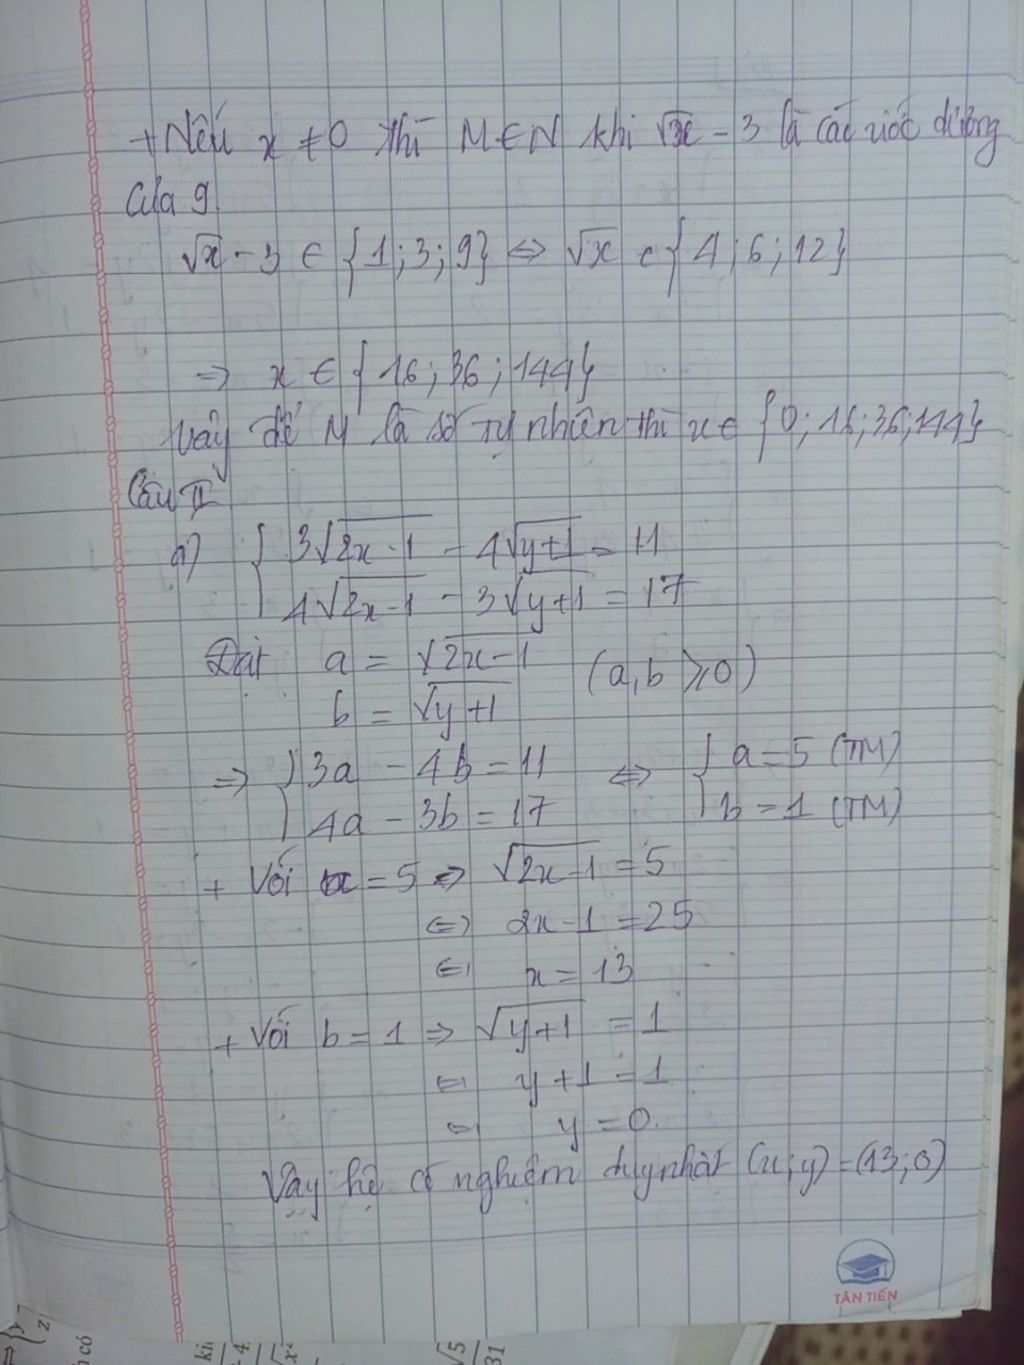 + Nếu x ≠ 0 thì M ∈ N khi √x - 3 là các ước dương
của 9.
√x - 3 ∈ {1; 3; 9} ⇔ √x ∈ {4; 6; 12}
⇒ x ∈ {16; 36; 144}
Vậy để M là số tự nhiên thì x ∈ {0; 16; 36; 144}
Câu II
a) { 3√2x-1 - 4√y+1 = 11
4√2x-1 - 3√y+1 = 17
Đặt a = √2x-1 (a, b ⩾ 0)
b = √y+1
⇒ { 3a - 4b = 11 ⇔ { a = 5 (TM)
4a - 3b = 17 b = 1 (TM)
+ Với a = 5 ⇒ √2x-1 = 5
⇔ 2x-1 = 25
⇔ x = 13
+ Với b = 1 ⇒ √y+1 = 1
⇔ y+1 = 1
⇔ y = 0.
Vậy hệ có nghiệm duy nhất (x; y) = (13; 0)
TÂN TIẾN